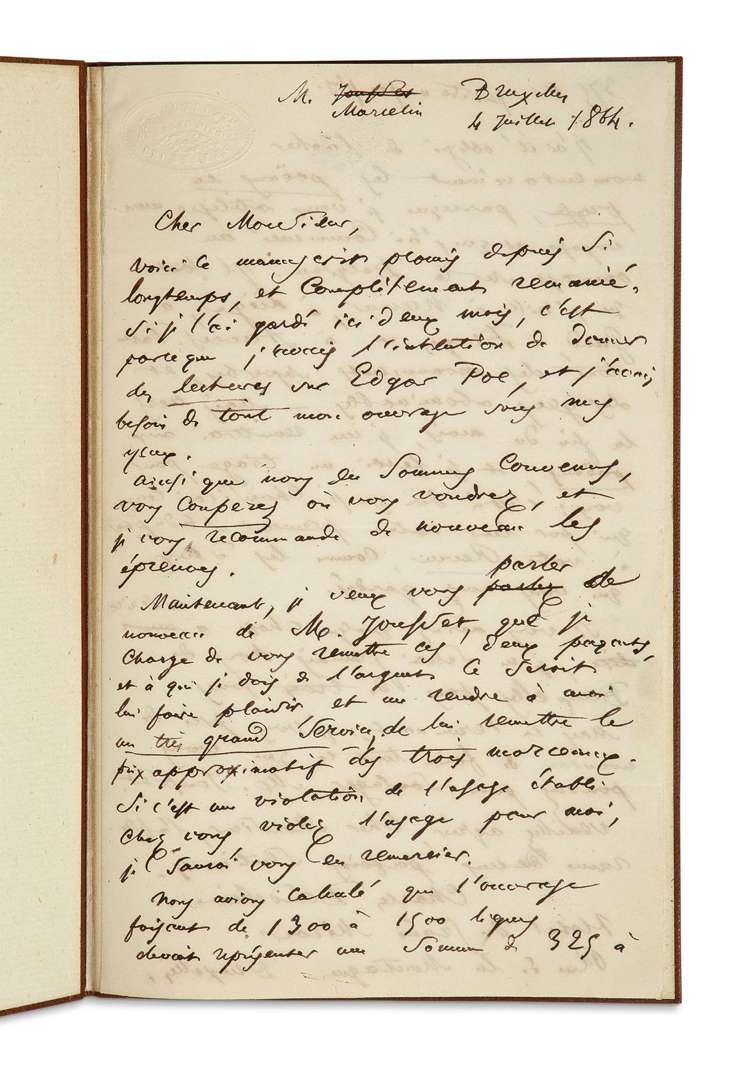 M. Jousset Bruxelles
Marcelin 4 Juillet 1864.
Cher Monsieur,
voici le manuscrit promis depuis si
longtemps, et complètement remanié.
Si je l'ai gardé ici deux mois, c'est
parce que j'avais l'intention de donner
des lectures sur Edgar Poe, et j'avais
besoin de tout mon ouvrage sous mes
yeux.
Ainsi que nous en sommes convenus,
vous couperez où vous voudrez, et
je vous recommande de nouveau les
épreuves.
parler
Maintenant, je veux vous parler de
nouveau de M. Jousset, que je
charge de vous remettre ces deux paquets,
et à qui je dois de l'argent. Ce serait
lui faire plaisir et me rendre à moi
un très grand service, de lui remettre le
prix approximatif des trois morceaux.
Si c'est une violation de l'usage établi
chez vous violez l'usage pour moi,
je saurai vous en remercier.
Nous avions calculé que l'ouvrage
faisant de 1300 à 1500 lignes
devait représenter une somme de 325 à